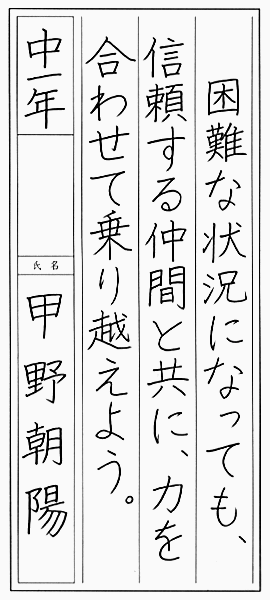 困難な状況になっても、
信頼する仲間と共に、力を
合わせて乗り越えよう。
中一年
氏名
甲野朝陽